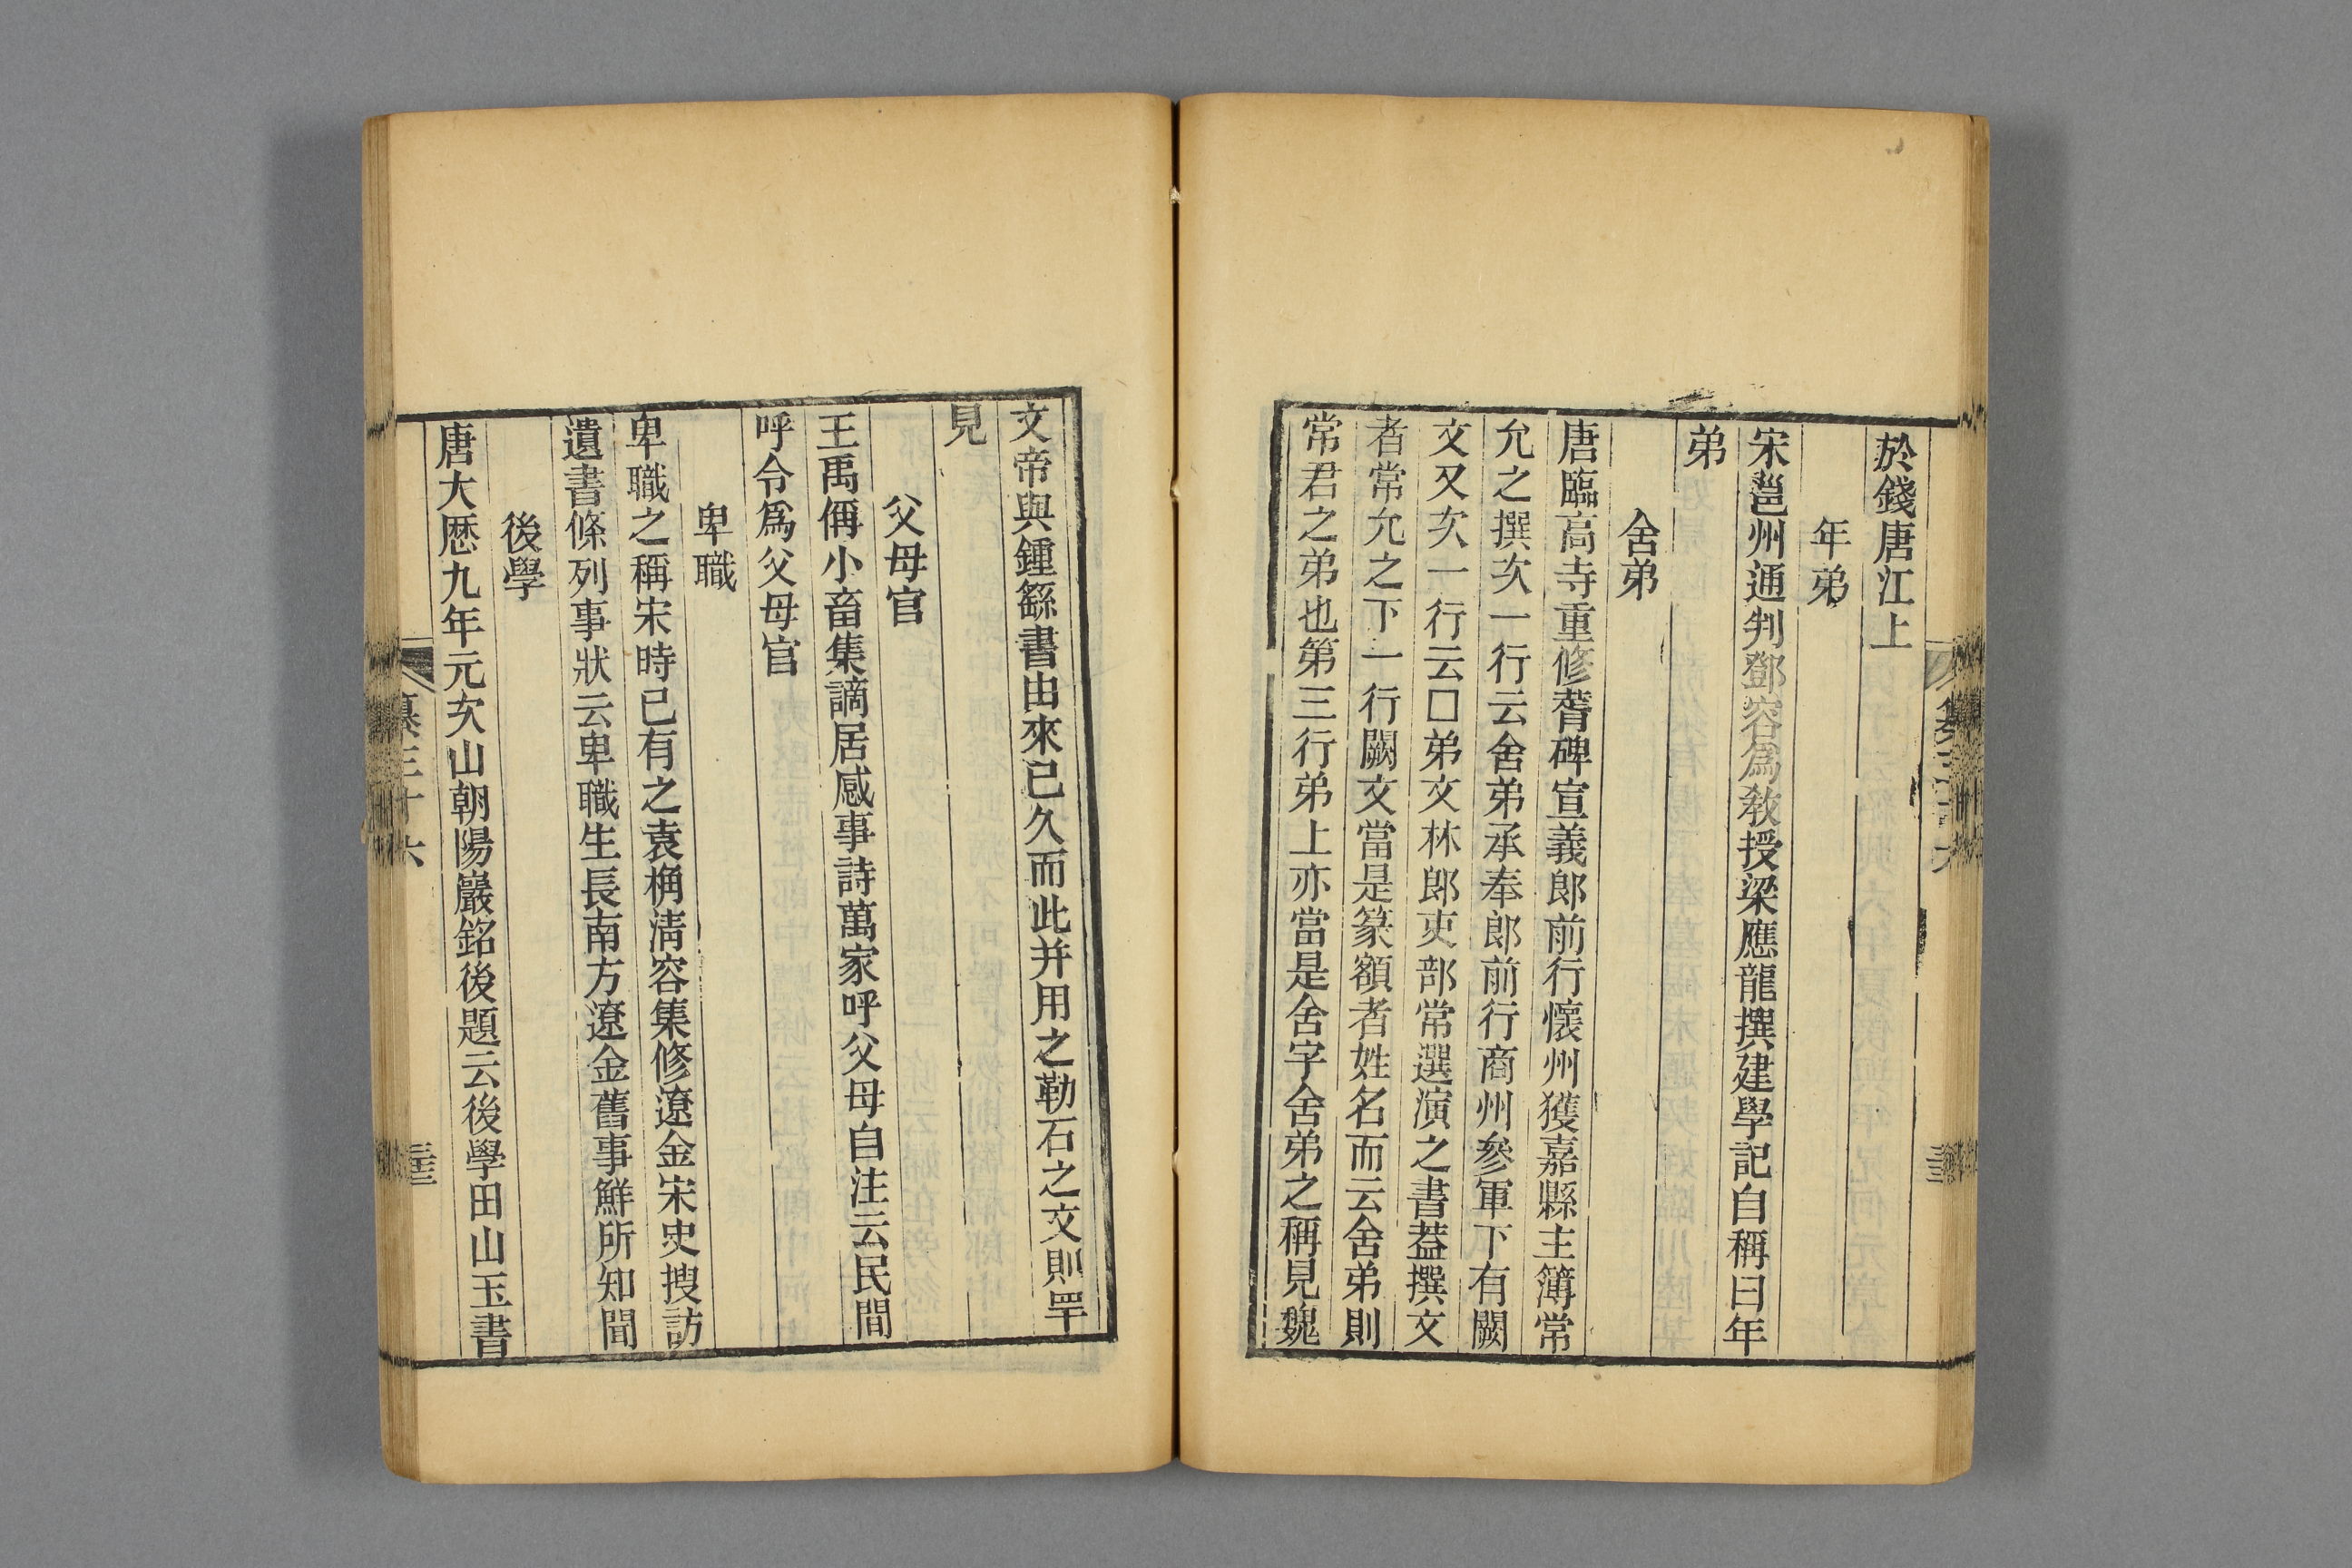 於錢唐江上
年弟
宋邕州通判鄧容爲敎授梁應龍撰建學記自稱曰年
弟
舍弟
唐臨高寺重修碑宣義郎前行懷州獲嘉縣主簿常
允之撰次一行云舍弟承奉郎前行商州參軍下有闕
文又次一行云□弟文林郎吏部常選演之書葢撰文
者常允之下一行闕文當是篆額者姓名而云舍弟則
常君之弟也第三行弟上亦當是舍字舍弟之稱見魏
文帝與鍾繇書由來已久而此并用之勒石之文則罕
見
父母官
王禹偁小畜集謫居感事詩萬家呼父母自注云民間
呼令爲父母官
卑職
卑職之稱宋時已有之袁桷淸容集修遼金宋史搜訪
遺書條列事狀云卑職生長南方遼金舊事鮮所知聞
後學
唐大厯九年元次山朝陽巖銘後題云後學田山玉書